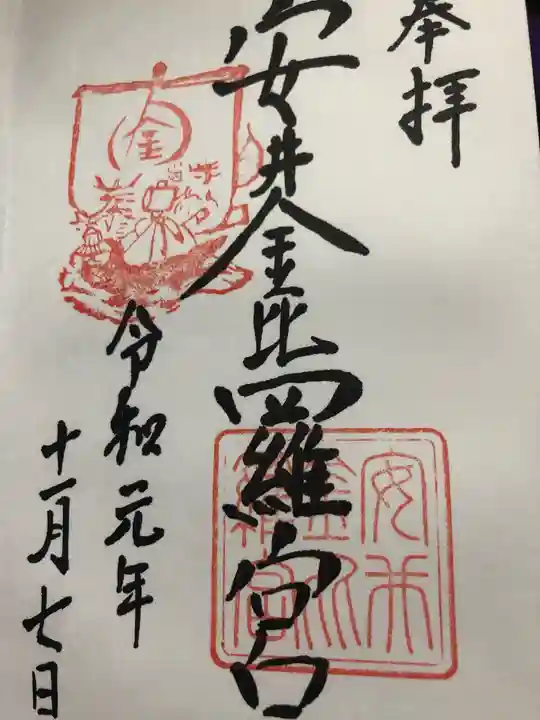 奉拝
安井金比羅宮
金
安井金比羅宮
令和元年
十一月七日